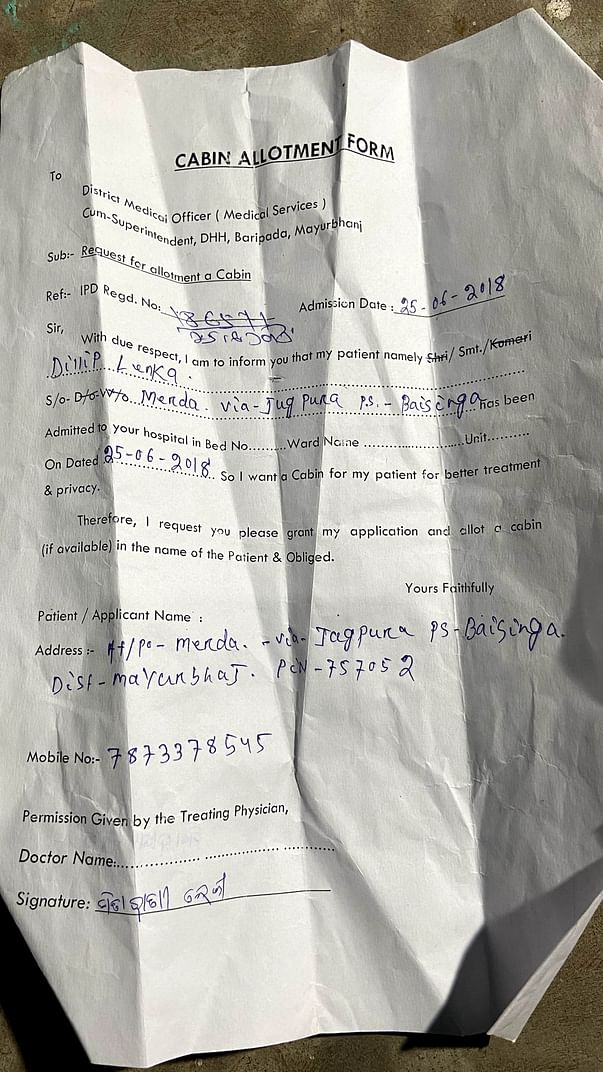 CABIN ALLOTMENT FORM
To
District Medical Officer ( Medical Services )
Cum-Superintendent, DHH, Baripada, Mayurbhanj
Sub:- Request for allotment a Cabin
Ref:- IPD Regd. No: Admission Date : 25-06-2018
Sir,
With due respect, I am to inform you that my patient namely Shri/ Smt./Komari
Dillip Lenka.
S/o- D/o-W/o Merda. via-Jugpura P.S.- Baisinga has been
Admitted to your hospital in Bed No.........Ward Name ........................Unit..........
On Dated 25-06-2018. So I want a Cabin for my patient for better treatment
& privacy.
Therefore, I request you please grant my application and allot a cabin
(if available) in the name of the Patient & Obliged.
Yours Faithfully
Patient / Applicant Name :
Address :- At/Po- merda. - via- Jagpura PS-Baisinga.
Dist-mayurbhaj. PiN-757052
Mobile No:- 7873378545
Permission Given by the Treating Physician,
Doctor Name:....................................................
Signature: